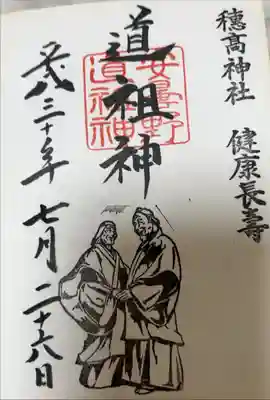 穂髙神社 健康長壽
道祖神
安曇野
道祖神
平成三十年 七月二十八日